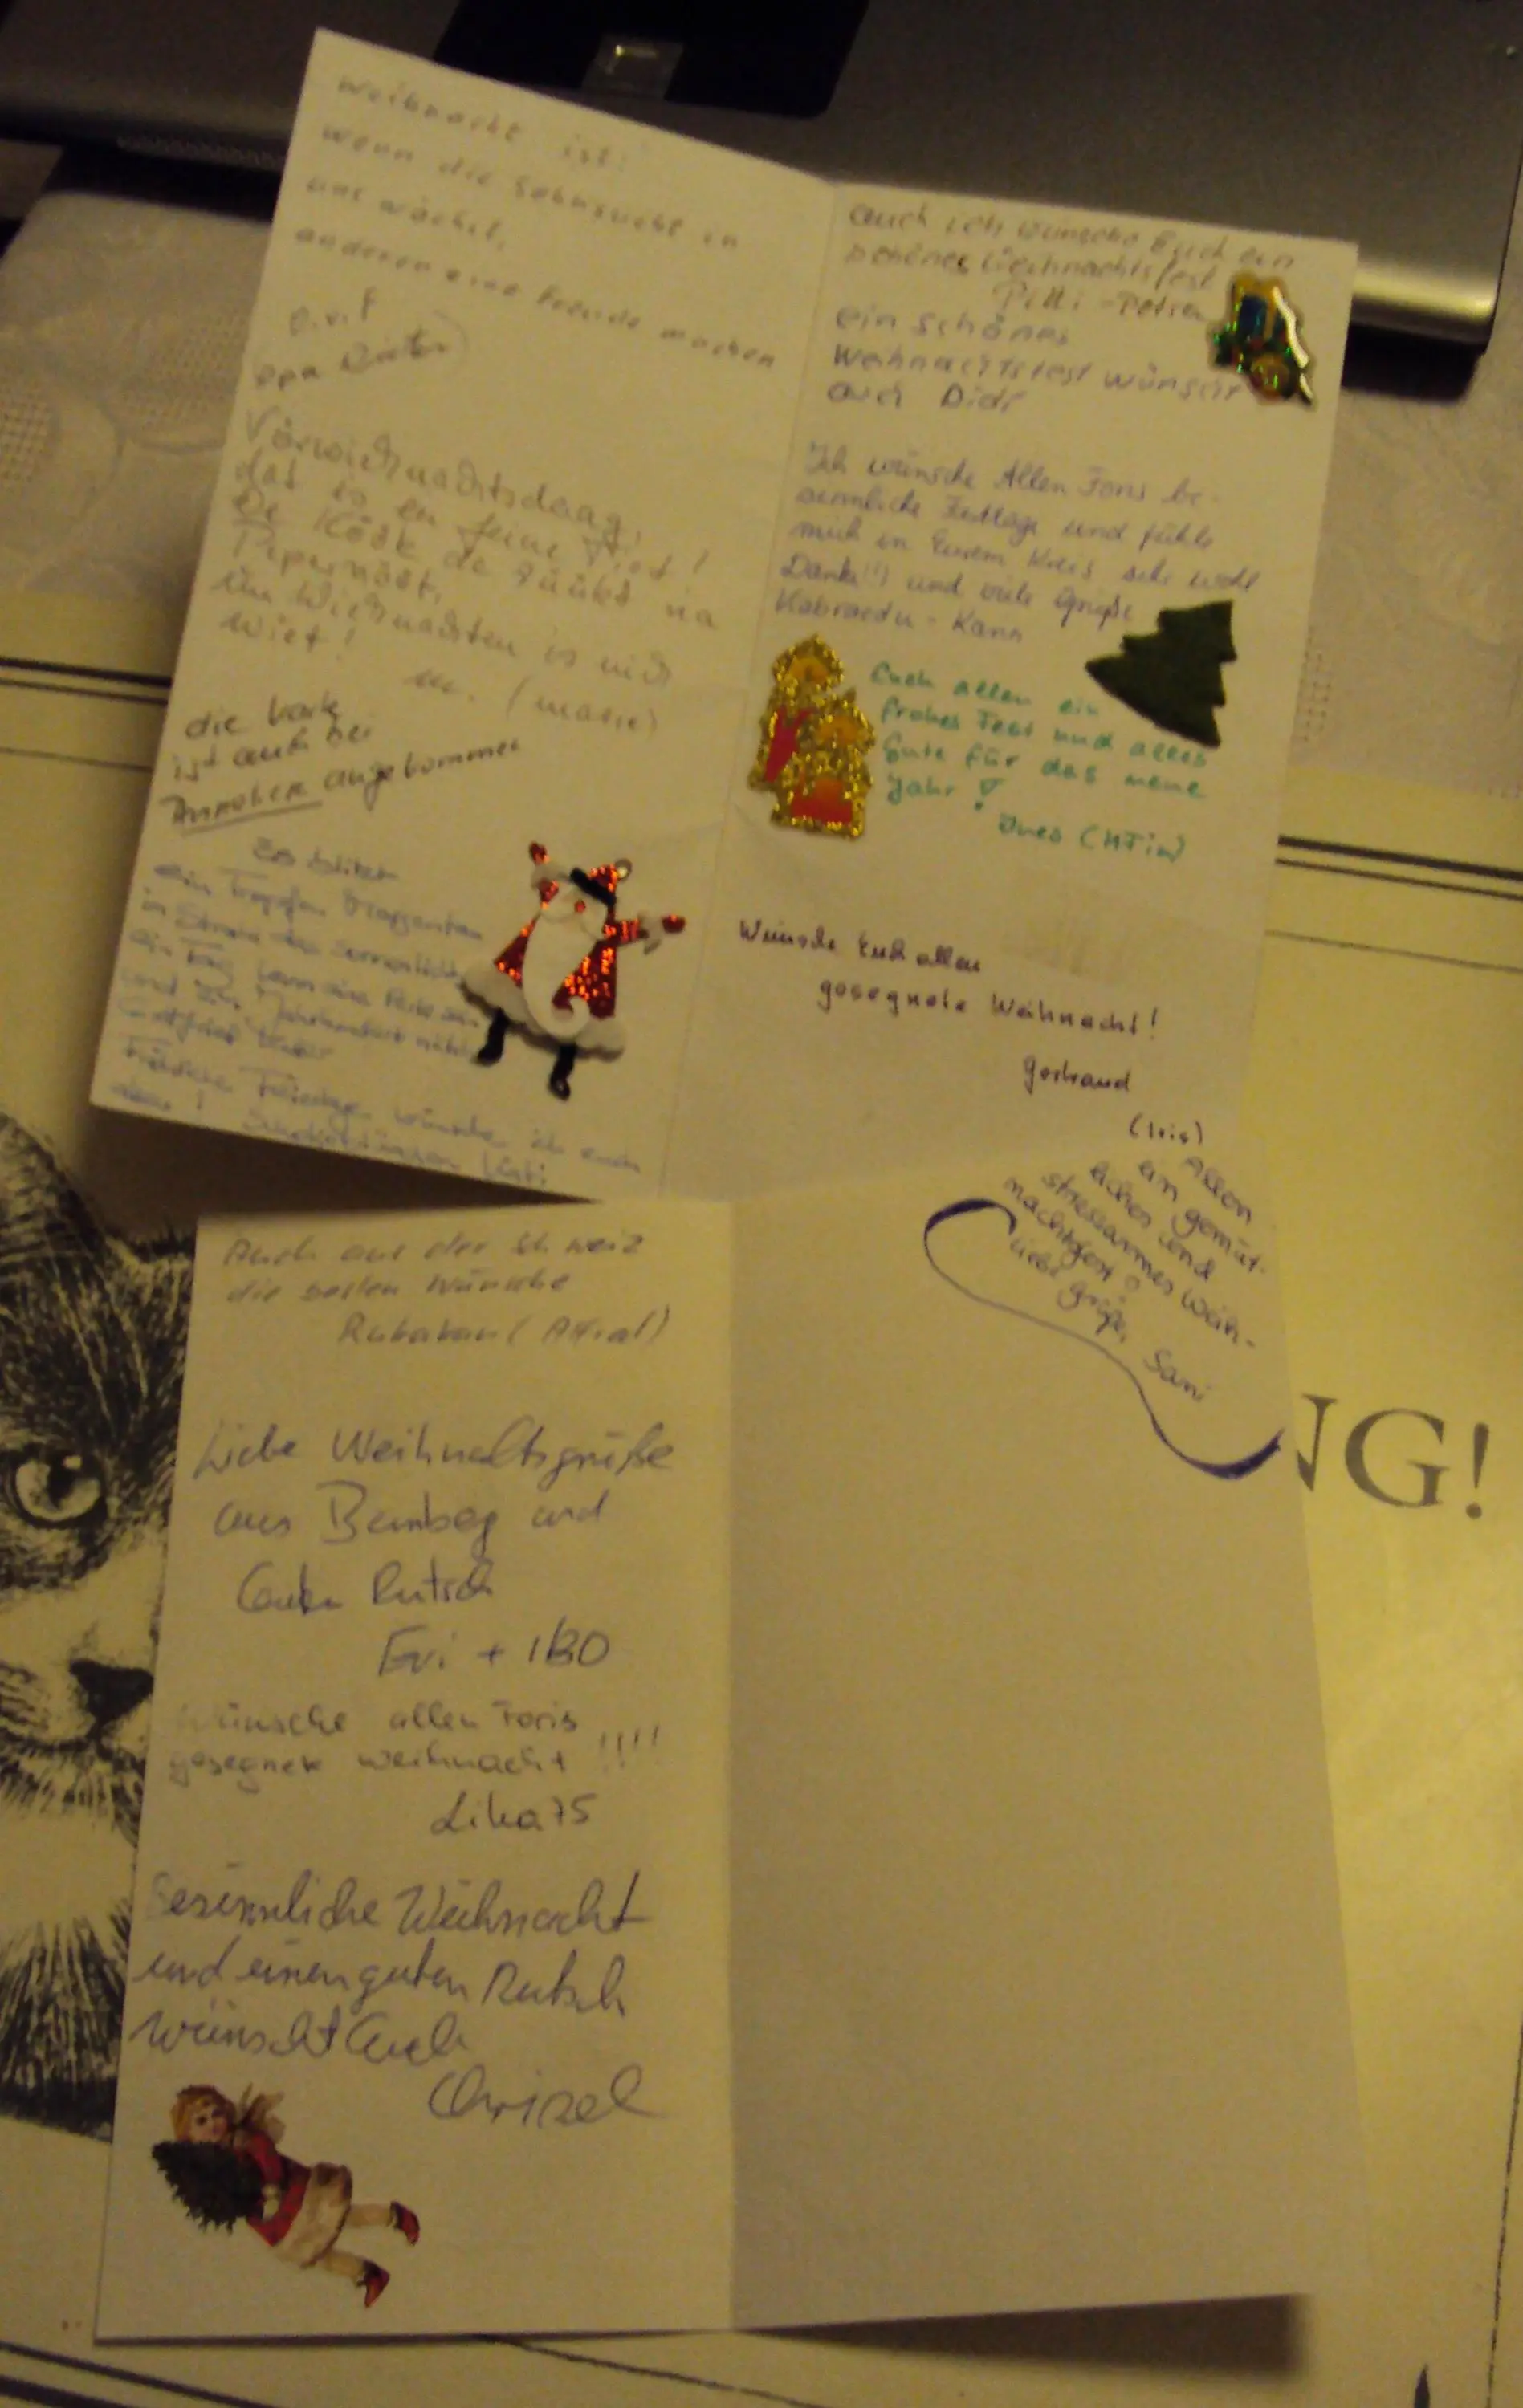 Weihnacht ist:
wenn die Sehnsucht in
uns wächst,
anderen eine Freude machen
Opa
Vörwiehnachtsdaag,
dat is en feine Tied!
De Köök de rüükt na
Pepernööt,
un Wiehnachten is nich
wiet!
(marie)
die Karte
ist auch bei
angekommen
Es blitzt
ein Tropfen Morgentau
im Strahl des Sonnenlichts
ein Tag kann eine Perle sein
und ein Jahrhundert nichts
Gottfried Keller
Feiertage wünsche ich euch
auch ich wünsche Euch ein
schönes Weihnachtsfest
Pitti
ein schönes
Weihnachtsfest wünscht
auch Didi
Ich wünsche Allen Foris be-
sinnliche Festtage und fühle
mich in Eurem Kreis sehr wohl
Danke!!! und viele Grüße
Euch allen ein
frohes Fest und alles
Gute für das neue
Jahr!
Ines (NTin)
Wünsche Euch allen
gesegnete Weihnacht!
Gertraud
(Iris)
Allen
ein gemüt-
liches und
stressarmes Weih-
nachtsfest
Liebe Grüße,
Sani
Auch aus der Schweiz
die besten Wünsche
Liebe Weihnachtsgrüße
aus Bamberg und
Guten Rutsch
Evi + IBO
Wünsche allen Foris
gesegnete Weihnacht !!!!
Lika75
Besinnliche Weihnacht
und einen guten Rutsch
wünscht Euch
Chrisel
NG!